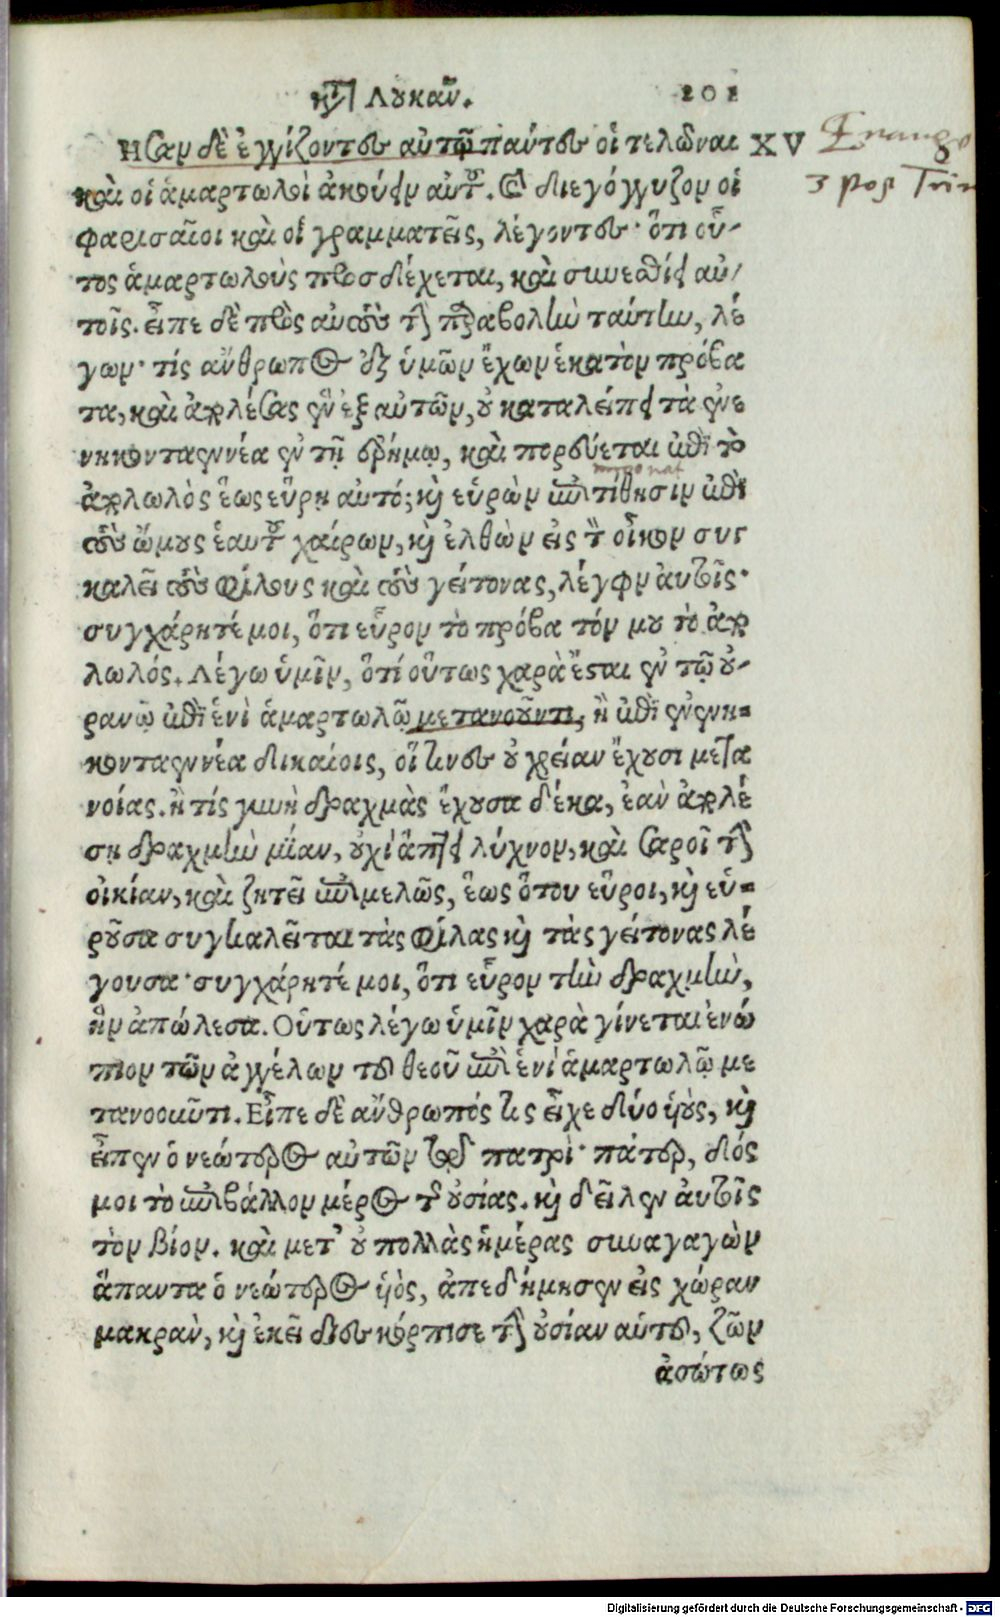 κατὰ Λουκᾶν. 101
Ησαν δὲ ἐγγίζοντες αὐτῷ πάντες οἱ τελῶναι XV
καὶ οἱ ἁμαρτωλοὶ ἀκούειν αὐτοῦ. καὶ διεγόγγυζον οἱ
φαρισαῖοι καὶ οἱ γραμματεῖς, λέγοντες· ὅτι οὗ-
τος ἁμαρτωλοὺς προσδέχεται, καὶ συνεσθίει αὐ-
τοῖς. εἶπε δὲ πρὸς αὐτοὺς τὴν παραβολὴν ταύτην, λέ
γων· τίς ἄνθρωπος ἐξ ὑμῶν ἔχων ἑκατὸν πρόβα
τα, καὶ ἀπολέσας ἓν ἐξ αὐτῶν, οὐ καταλείπει τὰ ἐνε
νηκονταεννέα ἐν τῇ ἐρήμῳ, καὶ πορεύεται ἐπὶ τὸ
ἀπολωλὸς ἕως εὕρῃ αὐτό; καὶ εὑρὼν ἐπιτίθησιν ἐπὶ
τοὺς ὤμους ἑαυτοῦ χαίρων, καὶ ἐλθὼν εἰς τὸν οἶκον συγ
καλεῖ τοὺς φίλους καὶ τοὺς γείτονας, λέγων αὐτοῖς·
συγχάρητέ μοι, ὅτι εὗρον τὸ πρόβα τόν μου τὸ ἀπο
λωλός. Λέγω ὑμῖν, ὅτί οὕτως χαρὰ ἔσται ἐν τῷ οὐ-
ρανῷ ἐπὶ ἑνὶ ἁμαρτωλῷ μετανοοῦντι, ἢ ἐπὶ ἐνενη-
κονταεννέα δικαίοις, οἵτινες οὐ χρείαν ἔχουσι μετα
νοίας. ἢ τίς γυνὴ δραχμὰς ἔχουσα δέκα, ἐὰν ἀπολέ
σῃ δραχμὴν μίαν, οὐχὶ ἅπτει λύχνον, καὶ σαροῖ τὴν
οἰκίαν, καὶ ζητεῖ ἐπιμελῶς, ἕως ὅτου εὕροι, καὶ εὑ-
ροῦσα συγκαλεῖται τὰς φίλας καὶ τὰς γείτονας λέ
γουσα· συγχάρητέ μοι, ὅτι εὗρον τὴν δραχμὴν,
ἣν ἀπώλεσα. Οὕτως λέγω ὑμῖν χαρὰ γίνεται ἐνώ
πιον τῶν ἀγγέλων τοῦ θεοῦ ἐπὶ ἑνὶ ἁμαρτωλῷ με
τανοοῦντι. Εἶπε δὲ ἄνθρωπός τις εἶχε δύο υἱοὺς, καὶ
εἶπεν ὁ νεώτερος αὐτῶν τῷ πατρί· πάτερ, δός
μοι τὸ ἐπιβάλλον μέρος τῆς οὐσίας. καὶ δεῖλεν αὐτοῖς
τὸν βίον. καὶ μετ' οὐ πολλὰς ἡμέρας συναγαγὼν
ἅπαντα ὁ νεώτερος υἱὸς, ἀπεδήμησεν εἰς χώραν
μακρὰν, καὶ ἐκεῖ διεσκόρπισε τὴν οὐσίαν αὑτοῦ, ζῶν
ἀσώτως
3 pos Trin
Digitalisierung gefördert durch die Deutsche Forschungsgemeinschaft - DFG